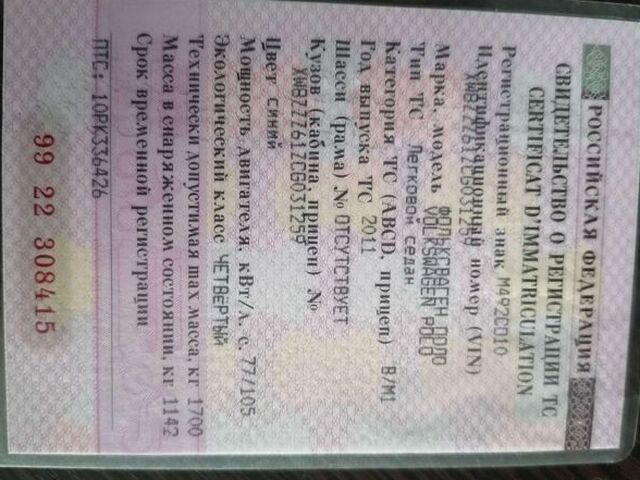 РОССИЙСКАЯ ФЕДЕРАЦИЯ
СВИДЕТЕЛЬСТВО О РЕГИСТРАЦИИ ТС
CERTIFICAT D'IMMATRICULATION
Регистрационный знак М492СО10
Идентификационный номер (VIN)
XW8ZZZ61ZCG031259
Марка, модель ФОЛЬКСВАГЕН ПОЛО
VOLKSWAGEN POLO
Тип ТС Легковой седан
Категория ТС (ABCD, прицеп) B/M1
Год выпуска ТС 2011
Шасси (рама) № ОТСУТСТВУЕТ
Кузов (кабина, прицеп) №
XW8ZZZ61ZCG031259
Цвет СИНИЙ
Мощность двигателя, кВт/л. с. 77/105
Экологический класс ЧЕТВЁРТЫЙ
Технически допустимая max масса, кг 1700
Масса в снаряженном состоянии, кг 1142
Срок временной регистрации
ПТС: 10РК336426
99 22 308415